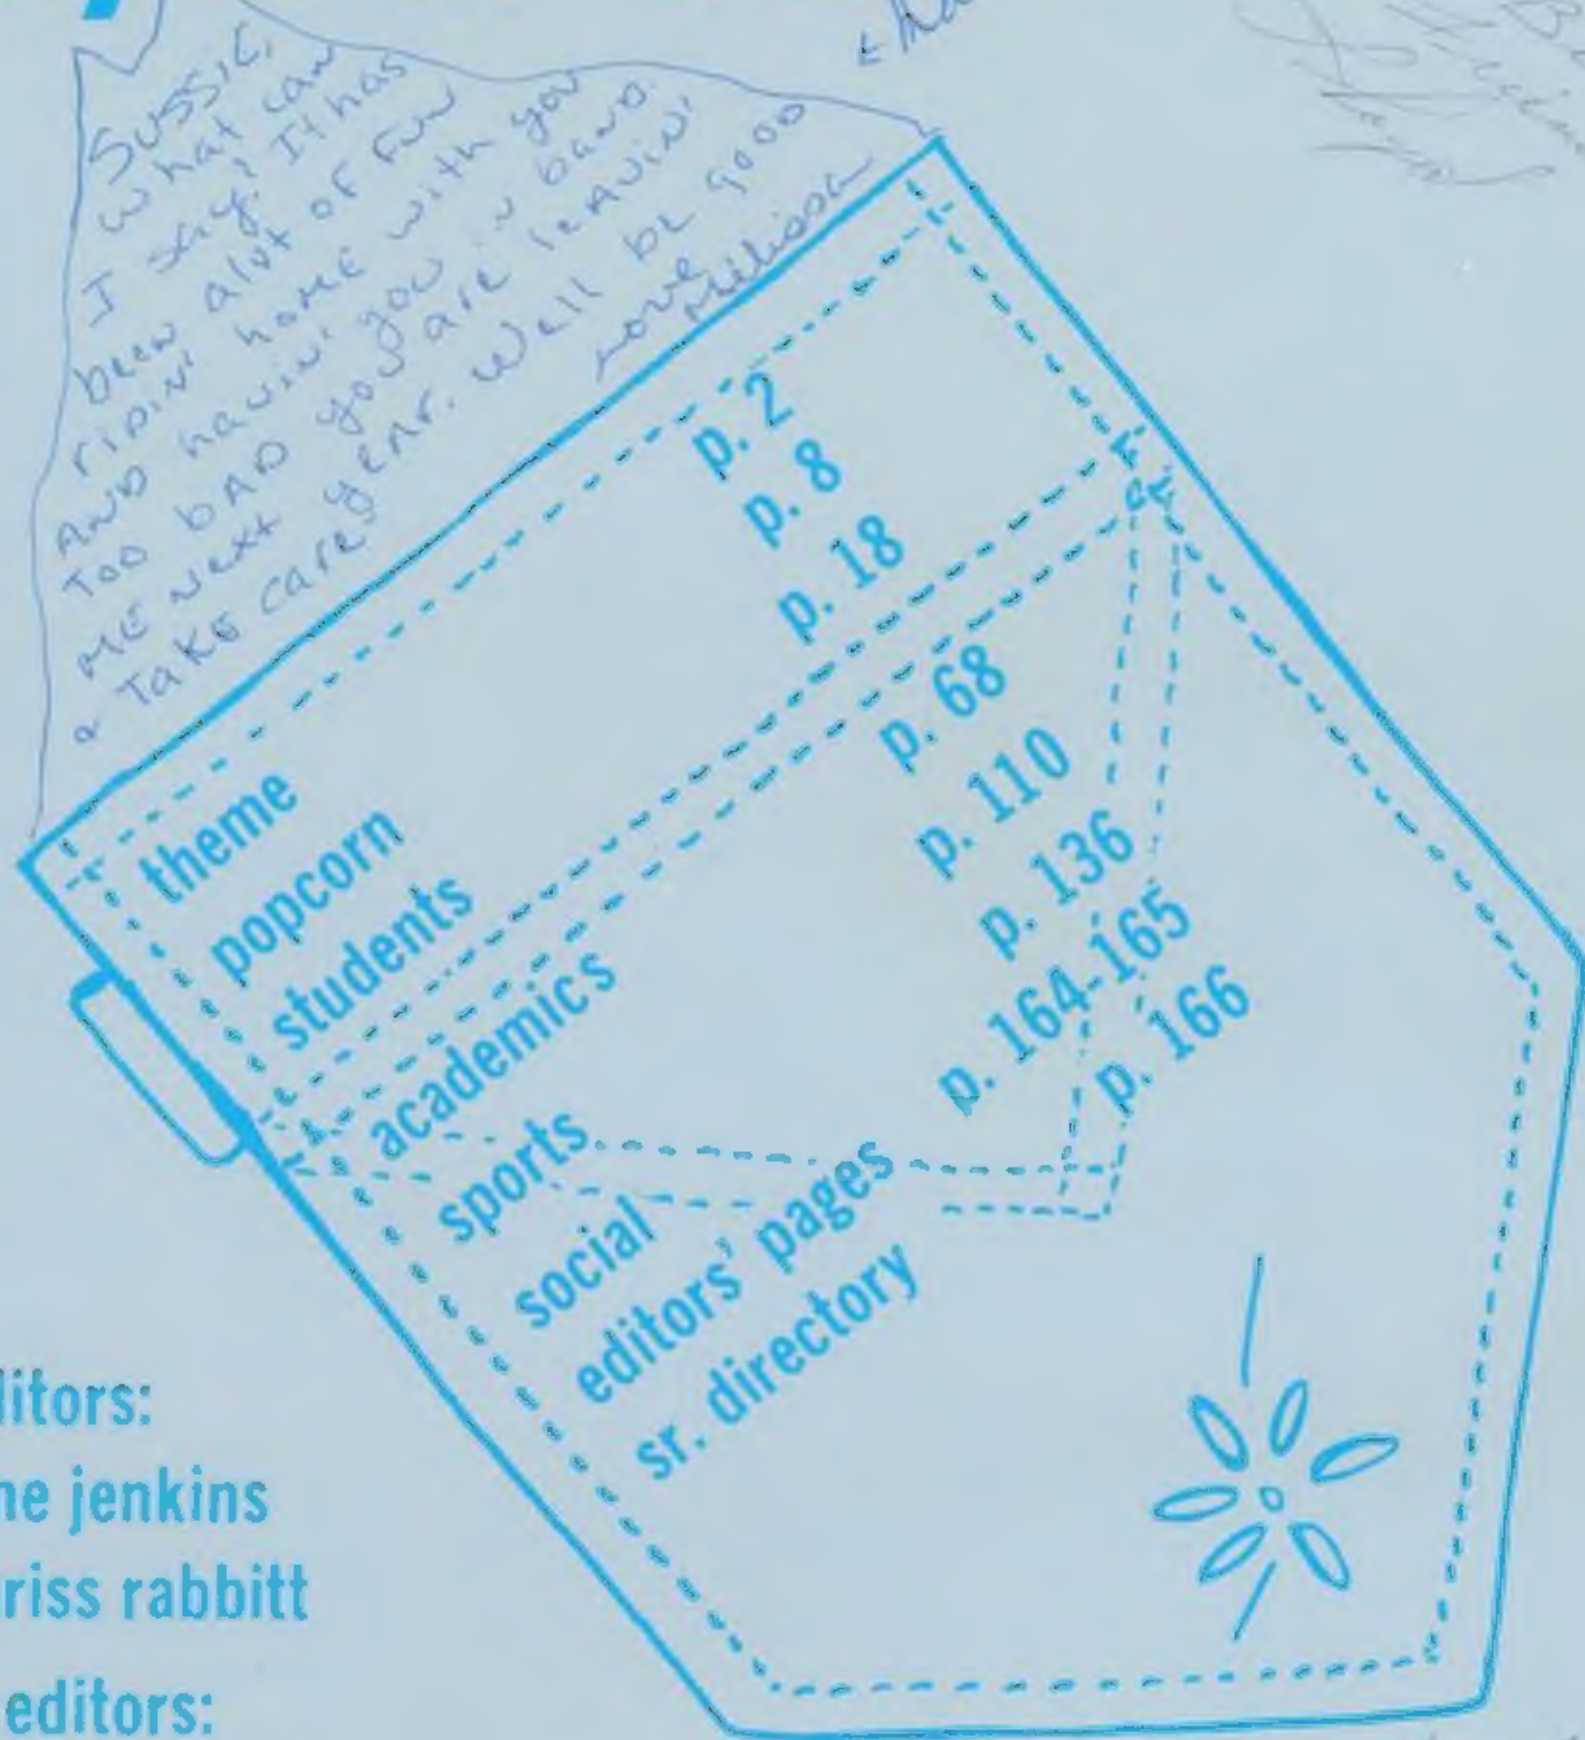 Sussie,
what can
I say? It has
been alot of fun
ridin' home with you
AND havin' you in band.
Too bAD you are leavin'
ME Next year. Well be good
& TaKE care
Love
Melissa
theme p. 2
popcorn p. 8
students p. 18
academics p. 68
sports p. 110
social p. 136
editors' pages p. 164-165
sr. directory p. 166
litors:
ne jenkins
riss rabbitt
editors: